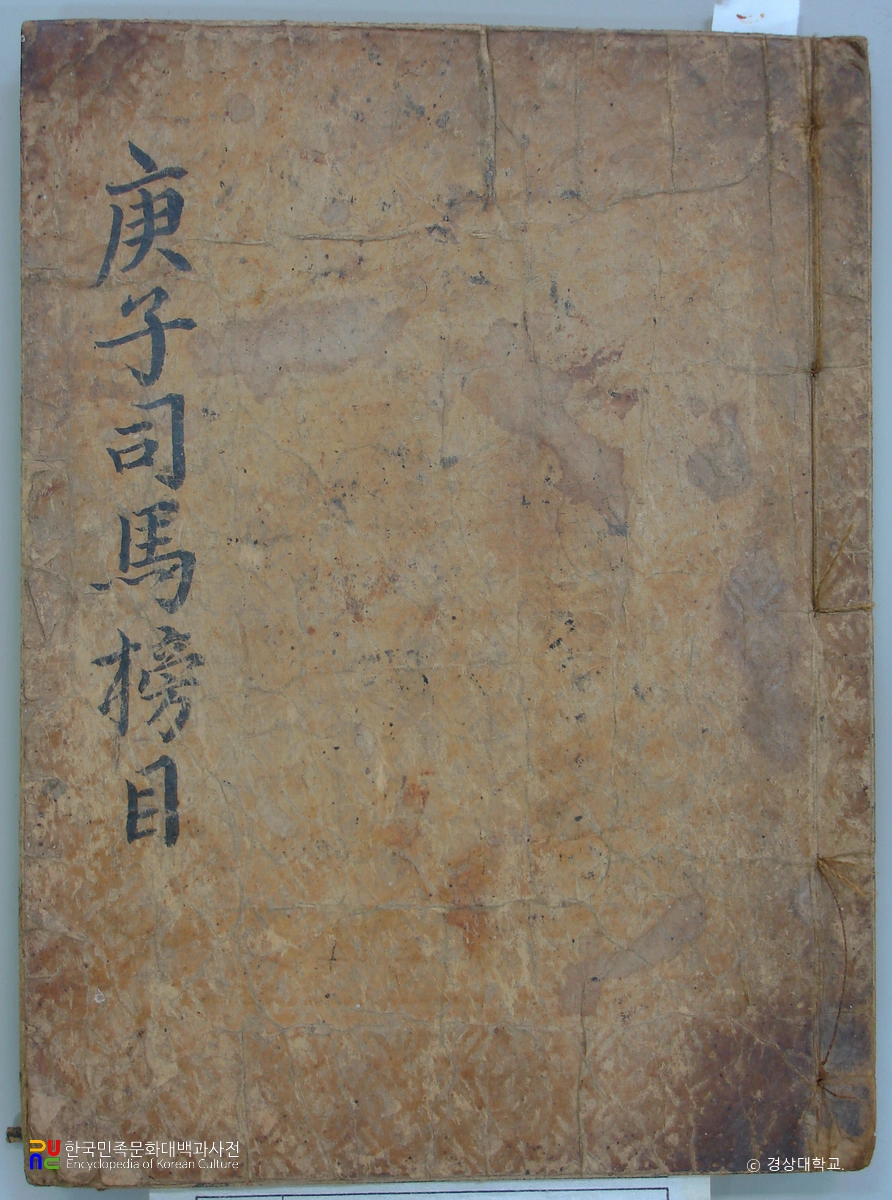 庚子司馬榜目
한국민족문화대백과사전
Encyclopedia of Korean Culture
© 경상대학교.